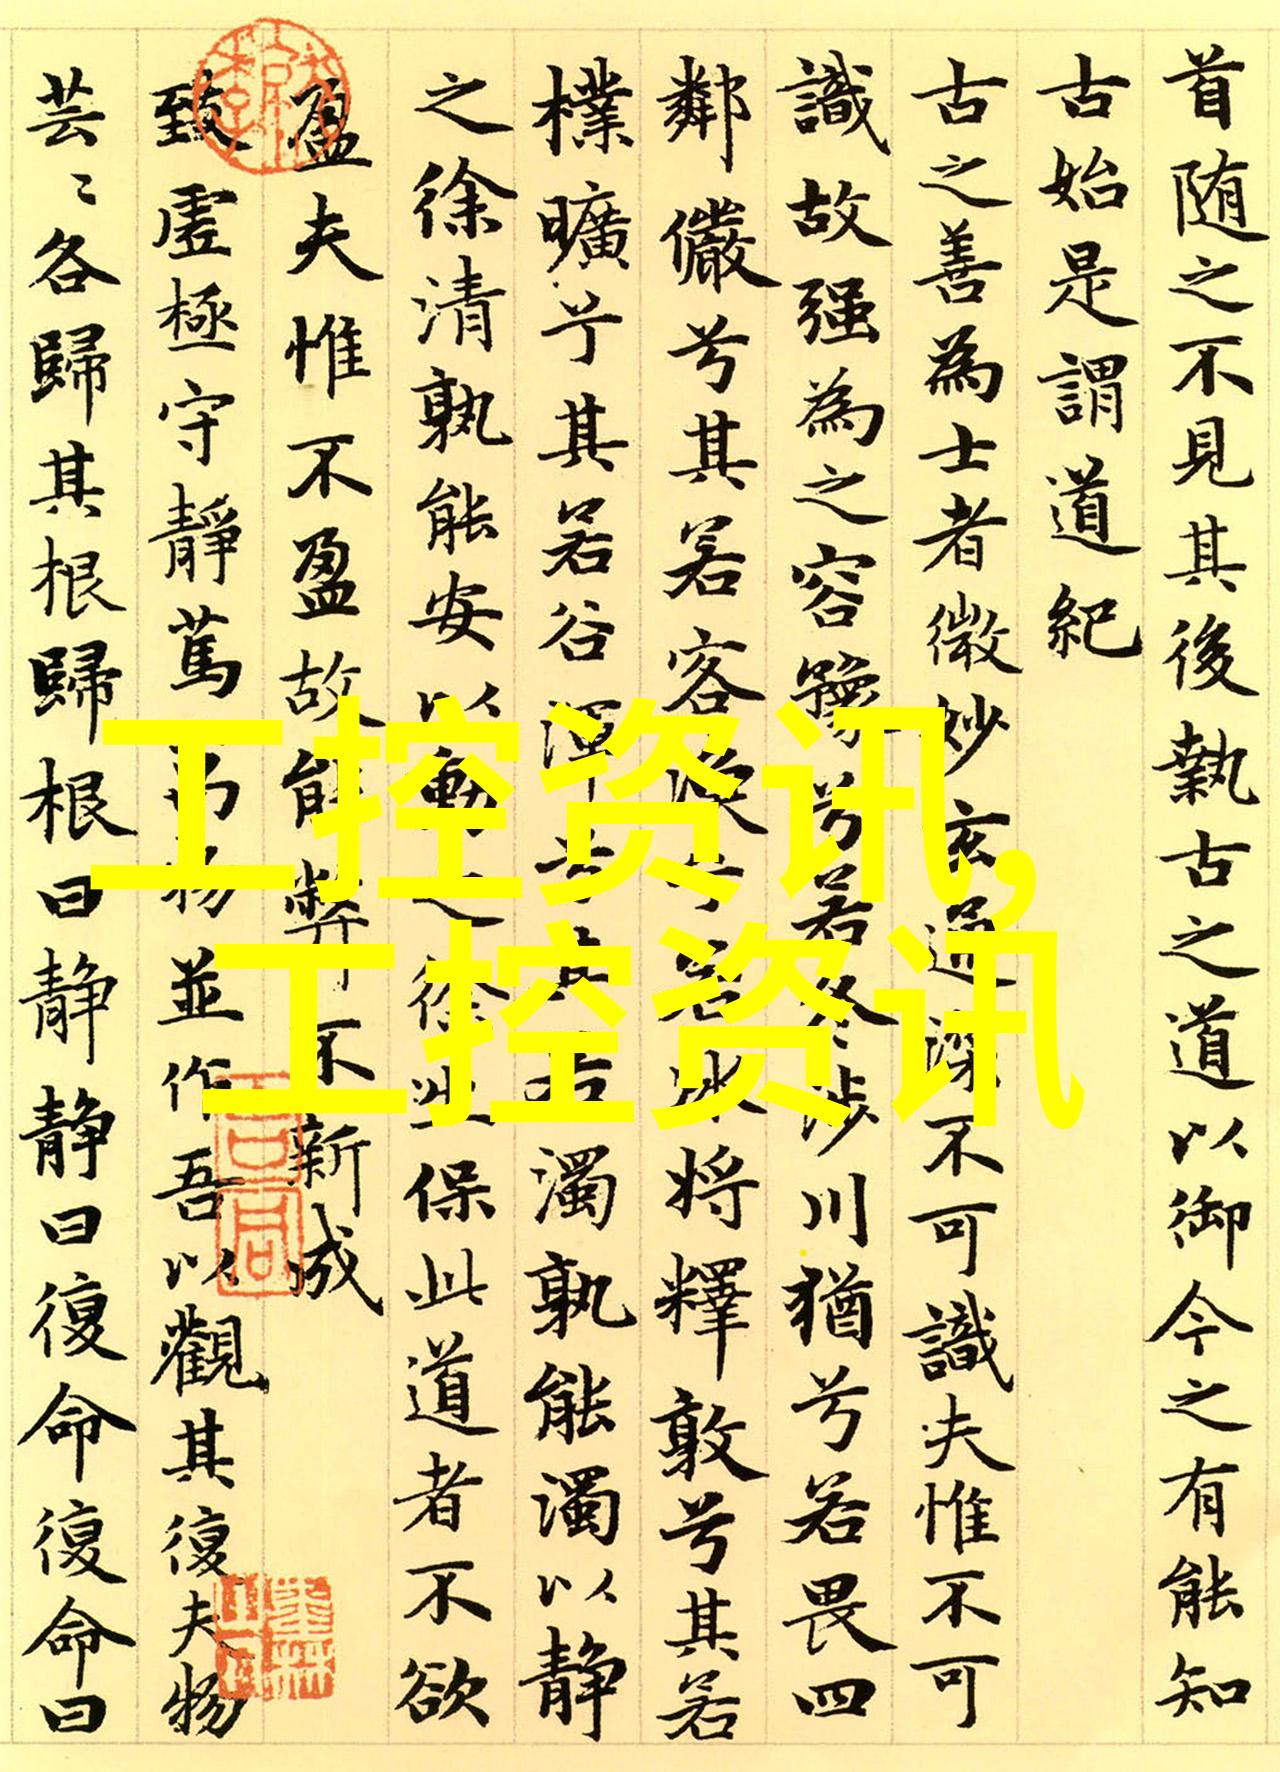 首随之不見其後執古之道以御今之有能知
古始是謂道紀
古之善為士者微妙玄通深不可識夫惟不可
識故强為之容豫兮若冬涉川猶兮若畏四
鄰儼兮其若客渙兮若冰將釋敦兮其若
樸曠兮其若谷渾兮其若濁孰能濁以静
之徐清孰能安以動之徐生保此道者不欲
盈夫惟不盈故能弊不新成
致虛極守靜篤万物並作吾以觀其復夫物
芸〻各歸其根歸根曰静静曰復命復命曰
工控资讯,
工控资讯